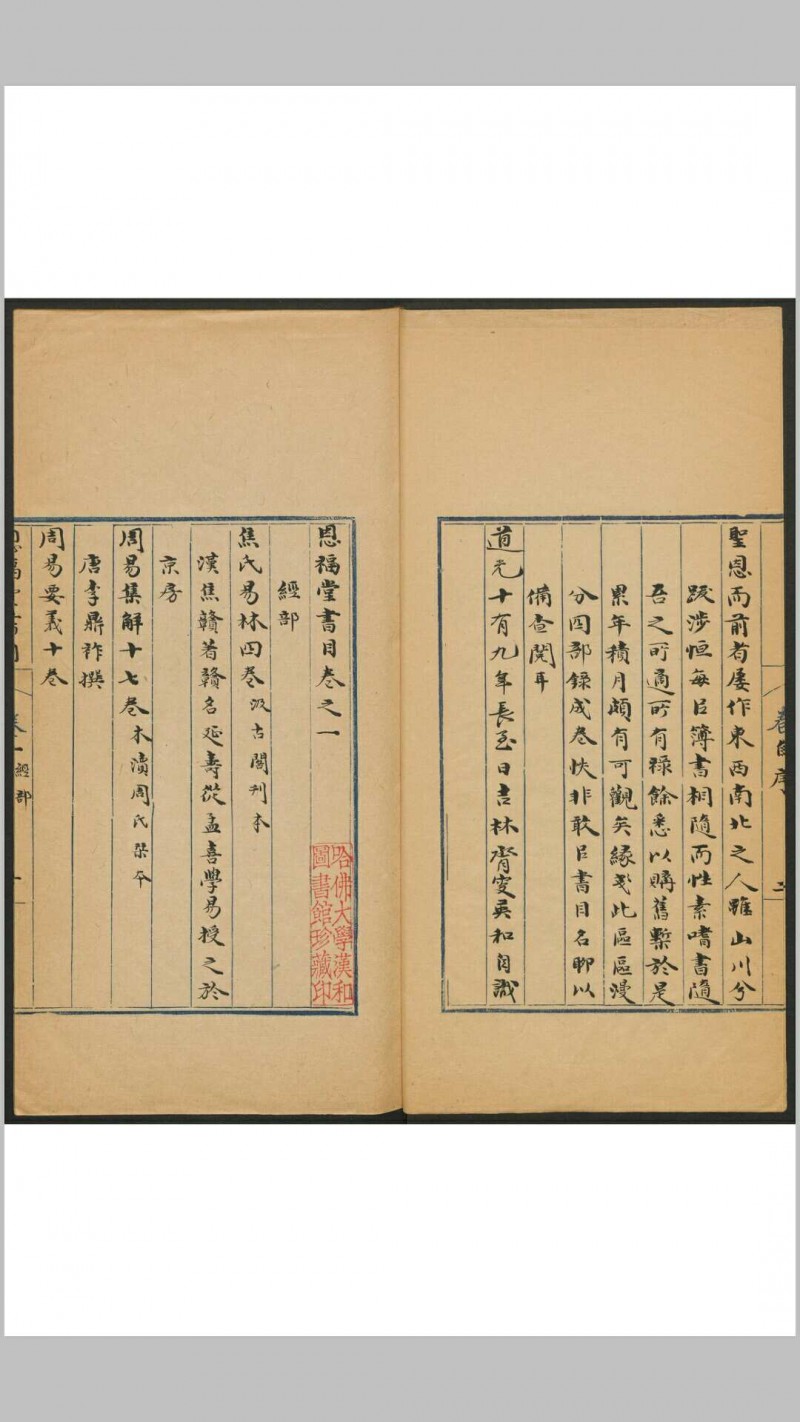 聖恩而前者屡作東西南北之人雖山川兮
跋涉恒每㠯簿書相隨而性素嗜書隨
吾之所適所有祿餘悉以購舊槧於是
累年積月頗有可觀矣緣㦮此區區漫
分四部錄成卷帙非敢㠯書目名聊以
備查閱耳
道光十有九年長至日吉林齊雯英和自識
恩福堂書目卷之一
經部
焦氏易林四卷 汲古閣刊本
漢焦贛著贛名延壽從孟喜學易授之於
京房
周易集解十七卷 木瀆周氏槧本
唐李鼎祚撰
周易要義十卷
恩福堂書目
卷一 經部
一
哈佛大學漢和
圖書館珍藏印